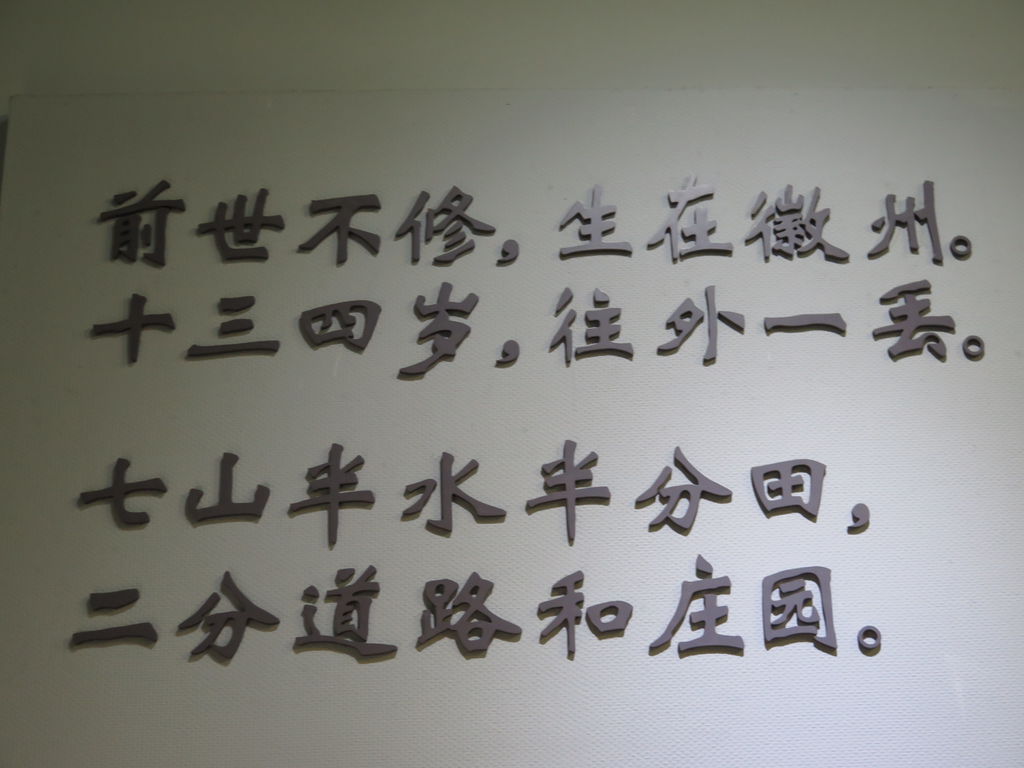 前世不修，生在徽州。
十三四岁，往外一丢。
七山半水半分田，
二分道路和庄园。